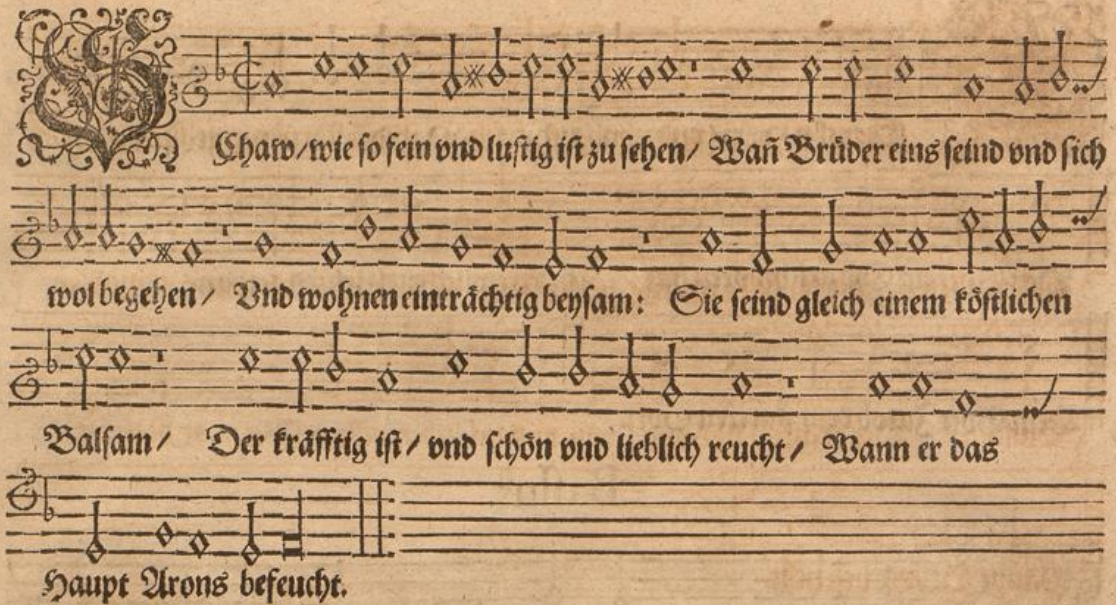 SChaw/wie so fein vnd lustig ist zu sehen/ Wañ Brüder eins seind vnd sich
wol begehen/ Vnd wohnen einträchtig beysam: Sie seind gleich einem köstlichen
Balsam/ Der kräfftig ist/ vnd schön vnd lieblich reucht/ Wann er das
Haupt Arons befeucht.